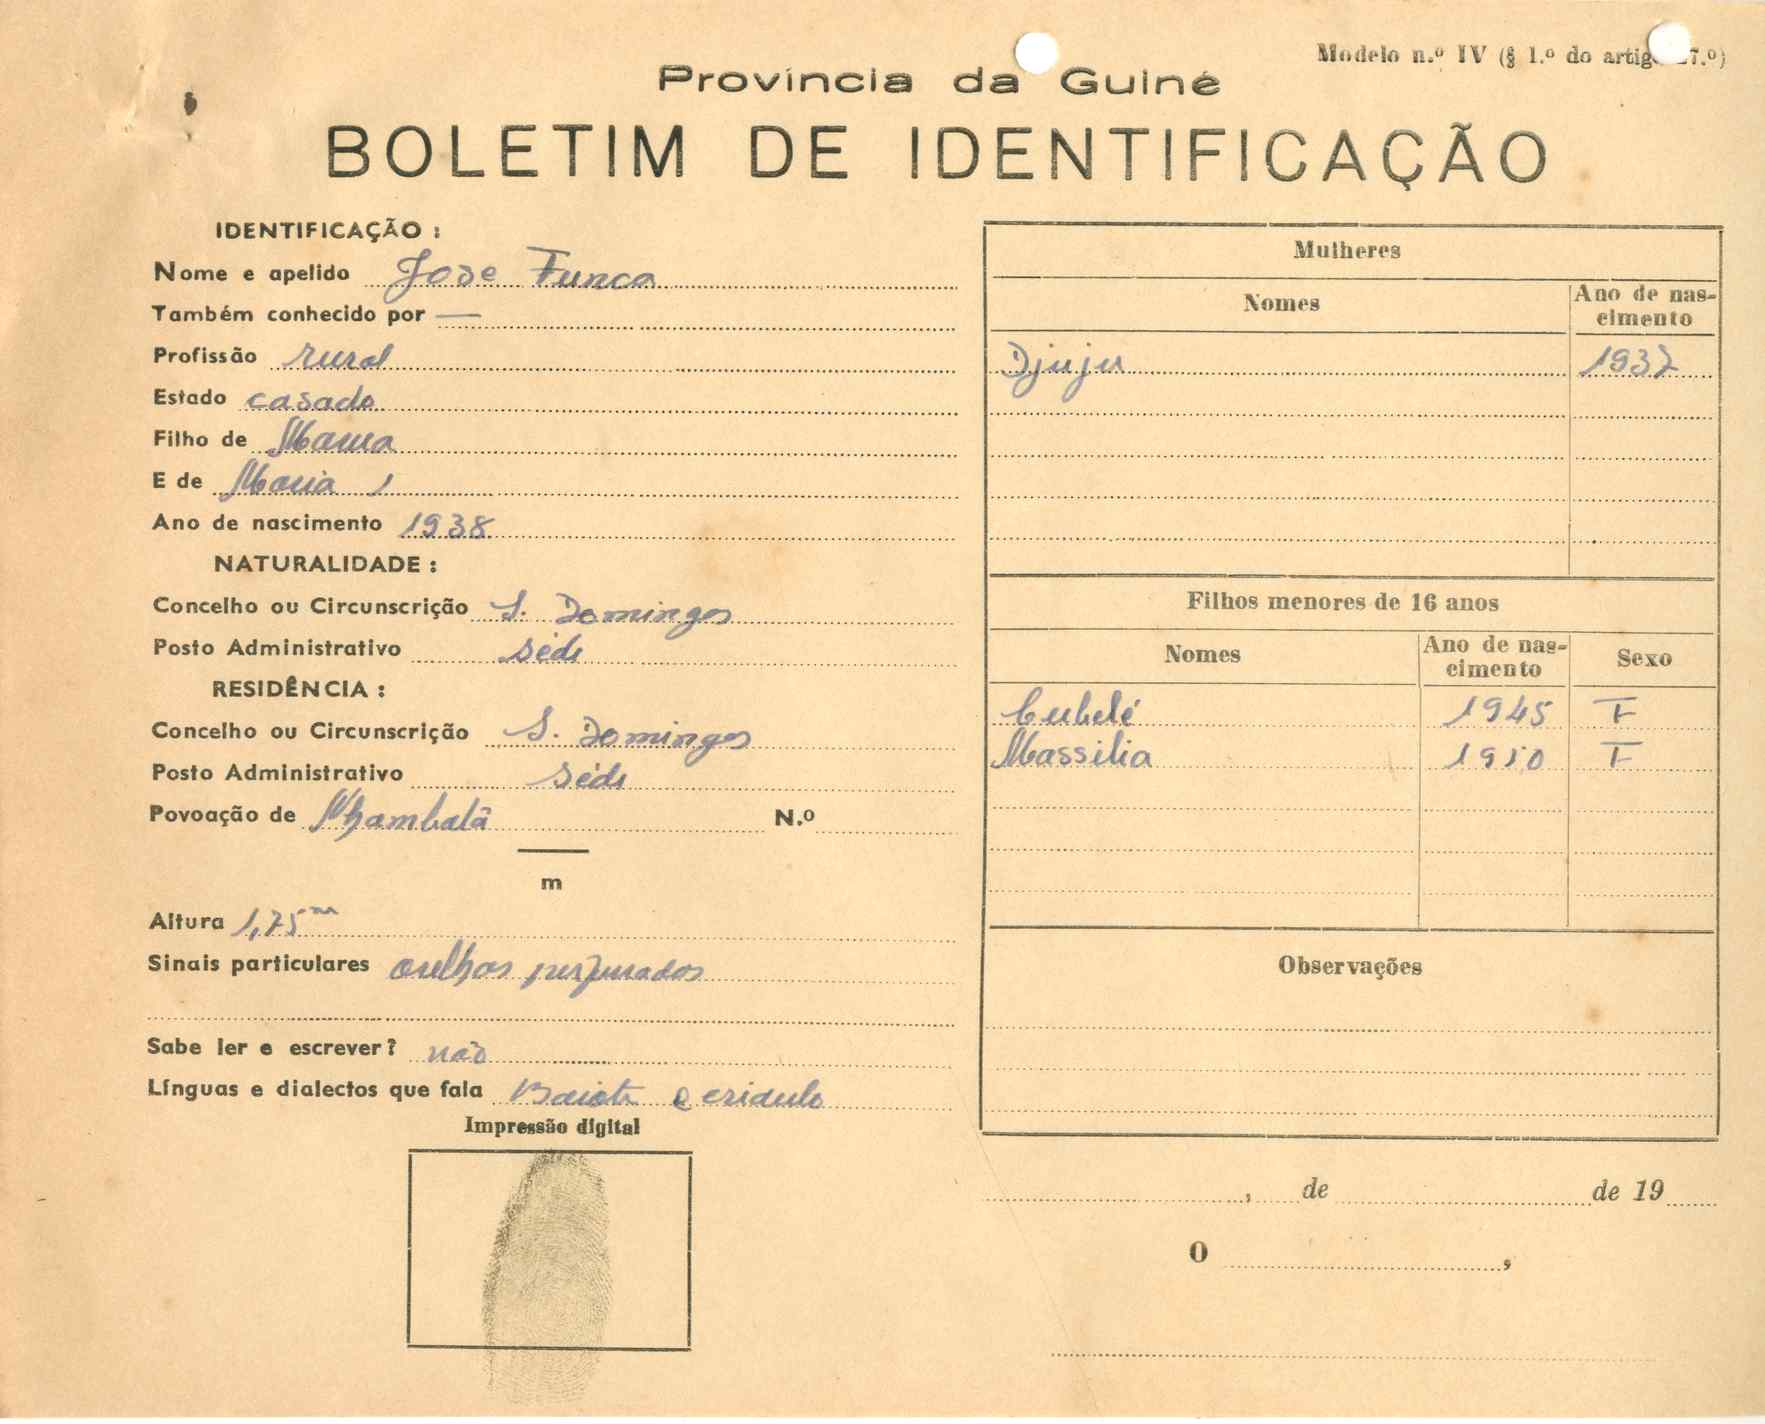 Modelo n.º IV (§ 1.º do artig 7.º)
Província da Guiné
BOLETIM DE IDENTIFICAÇÃO
IDENTIFICAÇÃO :
Nome e apelido Jose Funca
Também conhecido por —
Profissão rural
Estado casado
Filho de
E de Maria
Ano de nascimento 1938
NATURALIDADE :
Concelho ou Circunscrição S. Domingos
Posto Administrativo séde
RESIDÊNCIA :
Concelho ou Circunscrição S. Domingos
Posto Administrativo séde
Povoação de Nhambalã N.º
m
Altura 1,75 m
Sinais particulares orelhas perfuradas
Sabe ler e escrever? não
Línguas e dialectos que fala Baiote e crioulo
Impressão digital
Mulheres
Nomes Ano de nas-
cimento
Djuju 1937
Filhos menores de 16 anos
Nomes Ano de nas-
cimento Sexo
1945 F
Massilia 1950 F
Observações
, de de 19
O ,